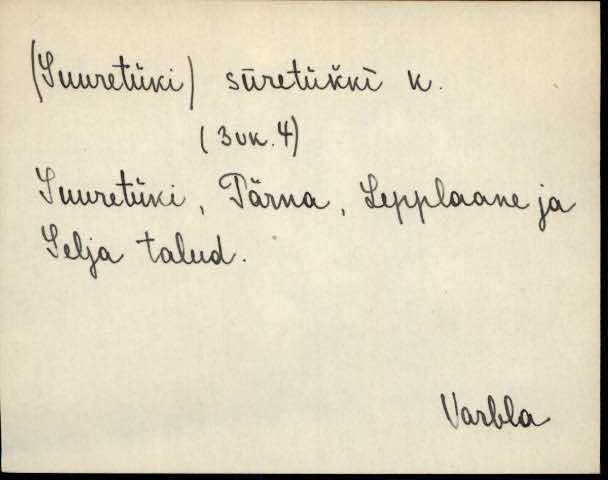 (Suuretüki) sūretük̆k̆ī k.
(3vk. 4)
Suuretüki, Pärna, Lepplaane ja
Selja talud.
Varbla